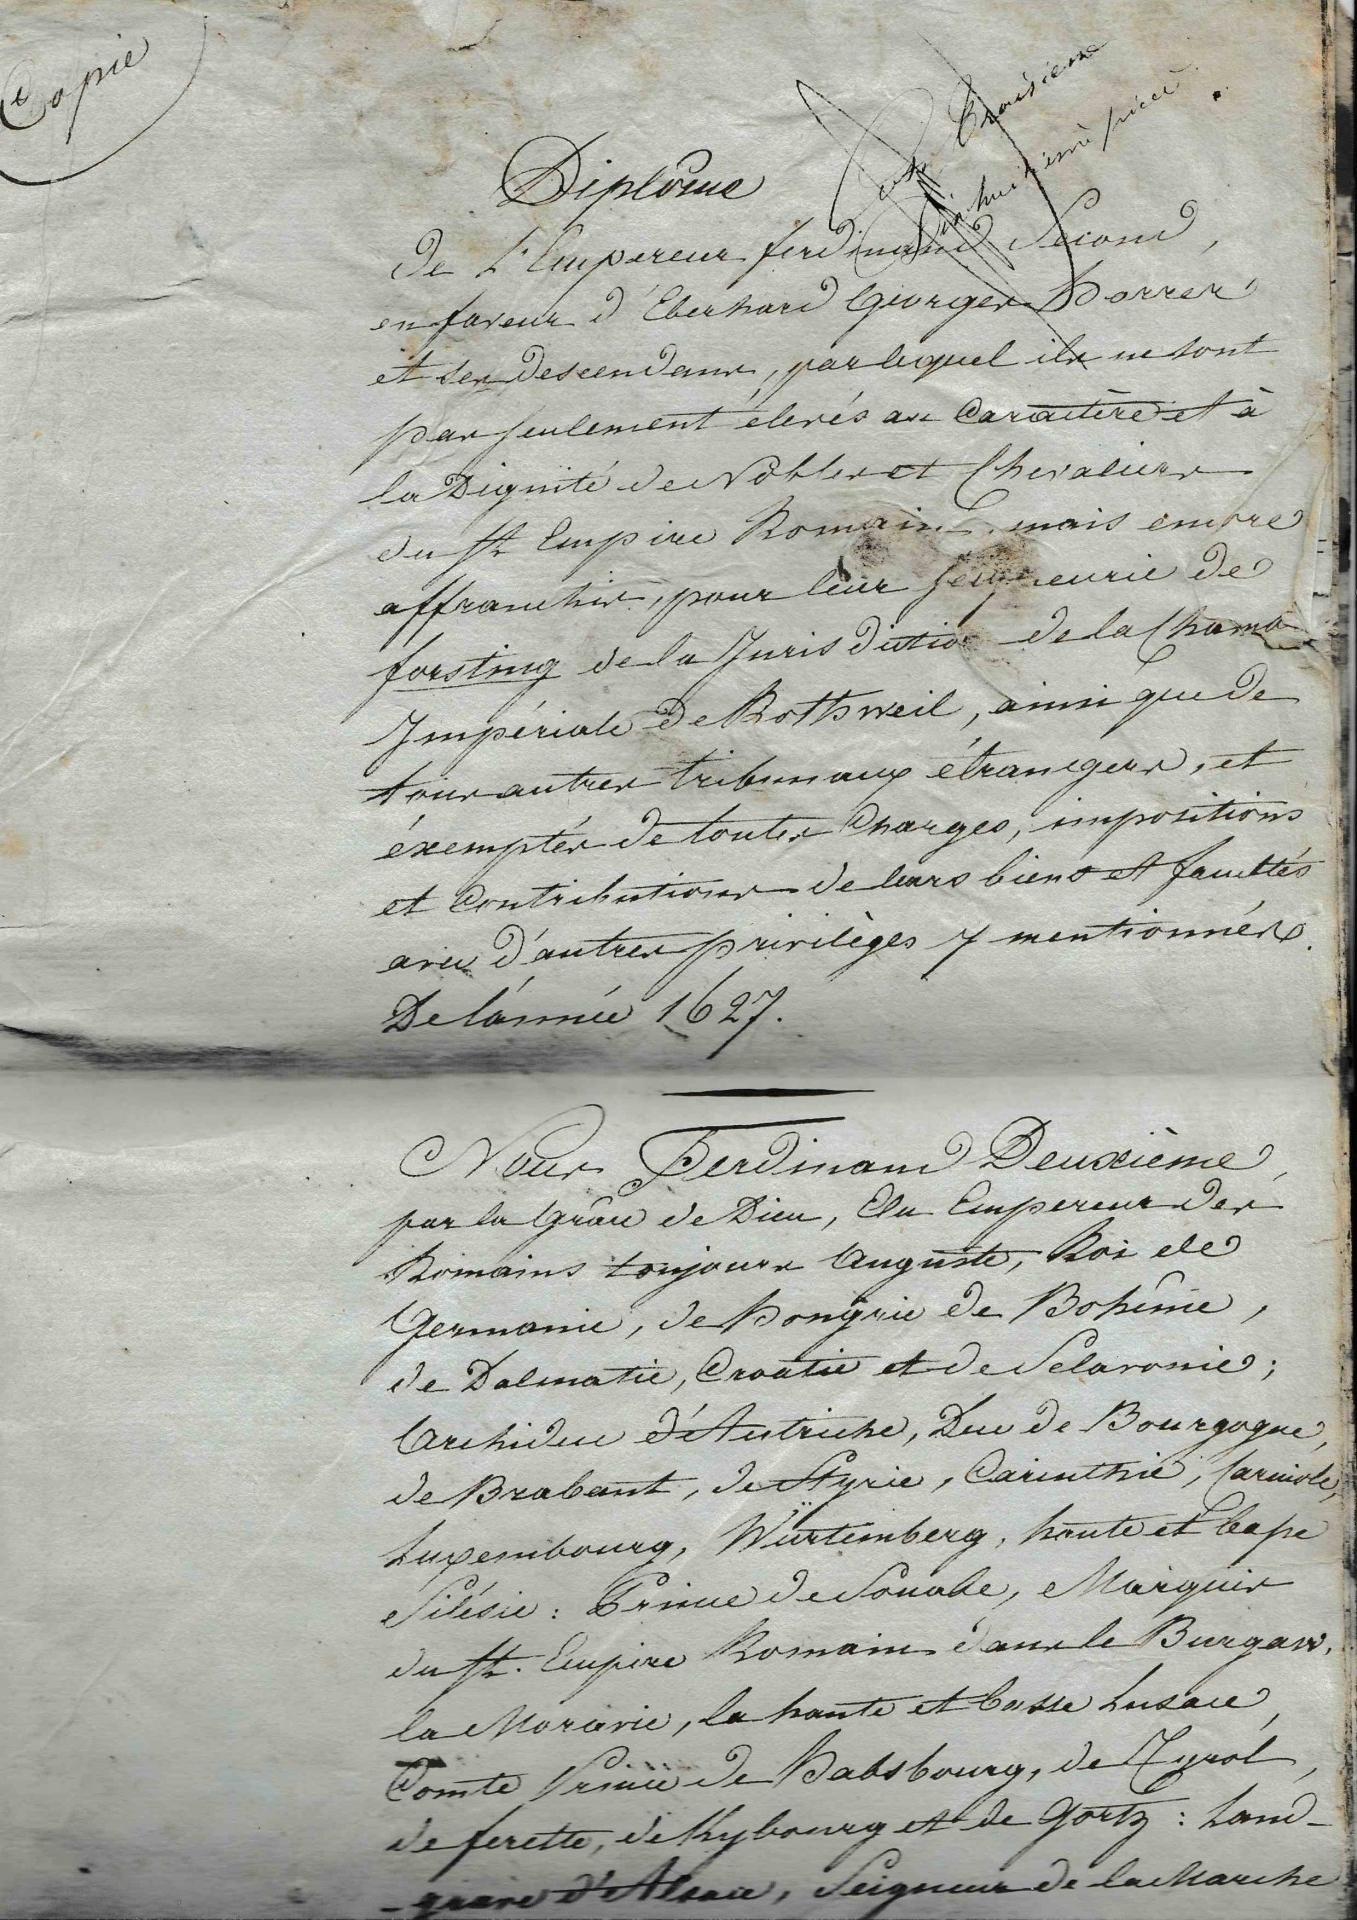 Copie
troisieme
huitième pièce
Diplôme
de L'Empereur ferdinand Second,
en faveur d'Eberhard George Horrer
et ses descendans, par lequel ils ne sont
pas seulement élevés au Caractère et à
la Dignité de Nobles et Chevaliers
du St Empire Romain, mais encore
affranchis, pour leur Seigneurie de
forsting de la Jurisdiction de la Chambre
Impériale de Rothweil, ainsi que de
tous autres tribunaux étrangers, et
éxemptés de toutes Charges, impositions
et Contributions de leurs biens et facultés
avec d'autres privilèges y mentionnés.
De l'année 1627.
Nous Ferdinand Deuxième,
par la Grâce de Dieu, Elu Empereur des
Romains toujours Auguste, Roi de
Germanie, de Hongrie de Bohême,
de Dalmatie, Croatie et de Sclavonie;
Archiduc d'Autriche, Duc de Bourgogne,
de Brabant, de Styrie, Carinthie, Carniole,
Luxembourg, Würtemberg, haute et basse
Silésie: Prince de Souabe, Marquis
du St. Empire Romain dans le Burgaw,
la Moravie, la haute et basse Lusace,
Comte Prince de Habsbourg, de Tyrol,
de ferette, de Kybourg et de Gortz: Land-
-grave d'Alsace, Seigneur de la Marche